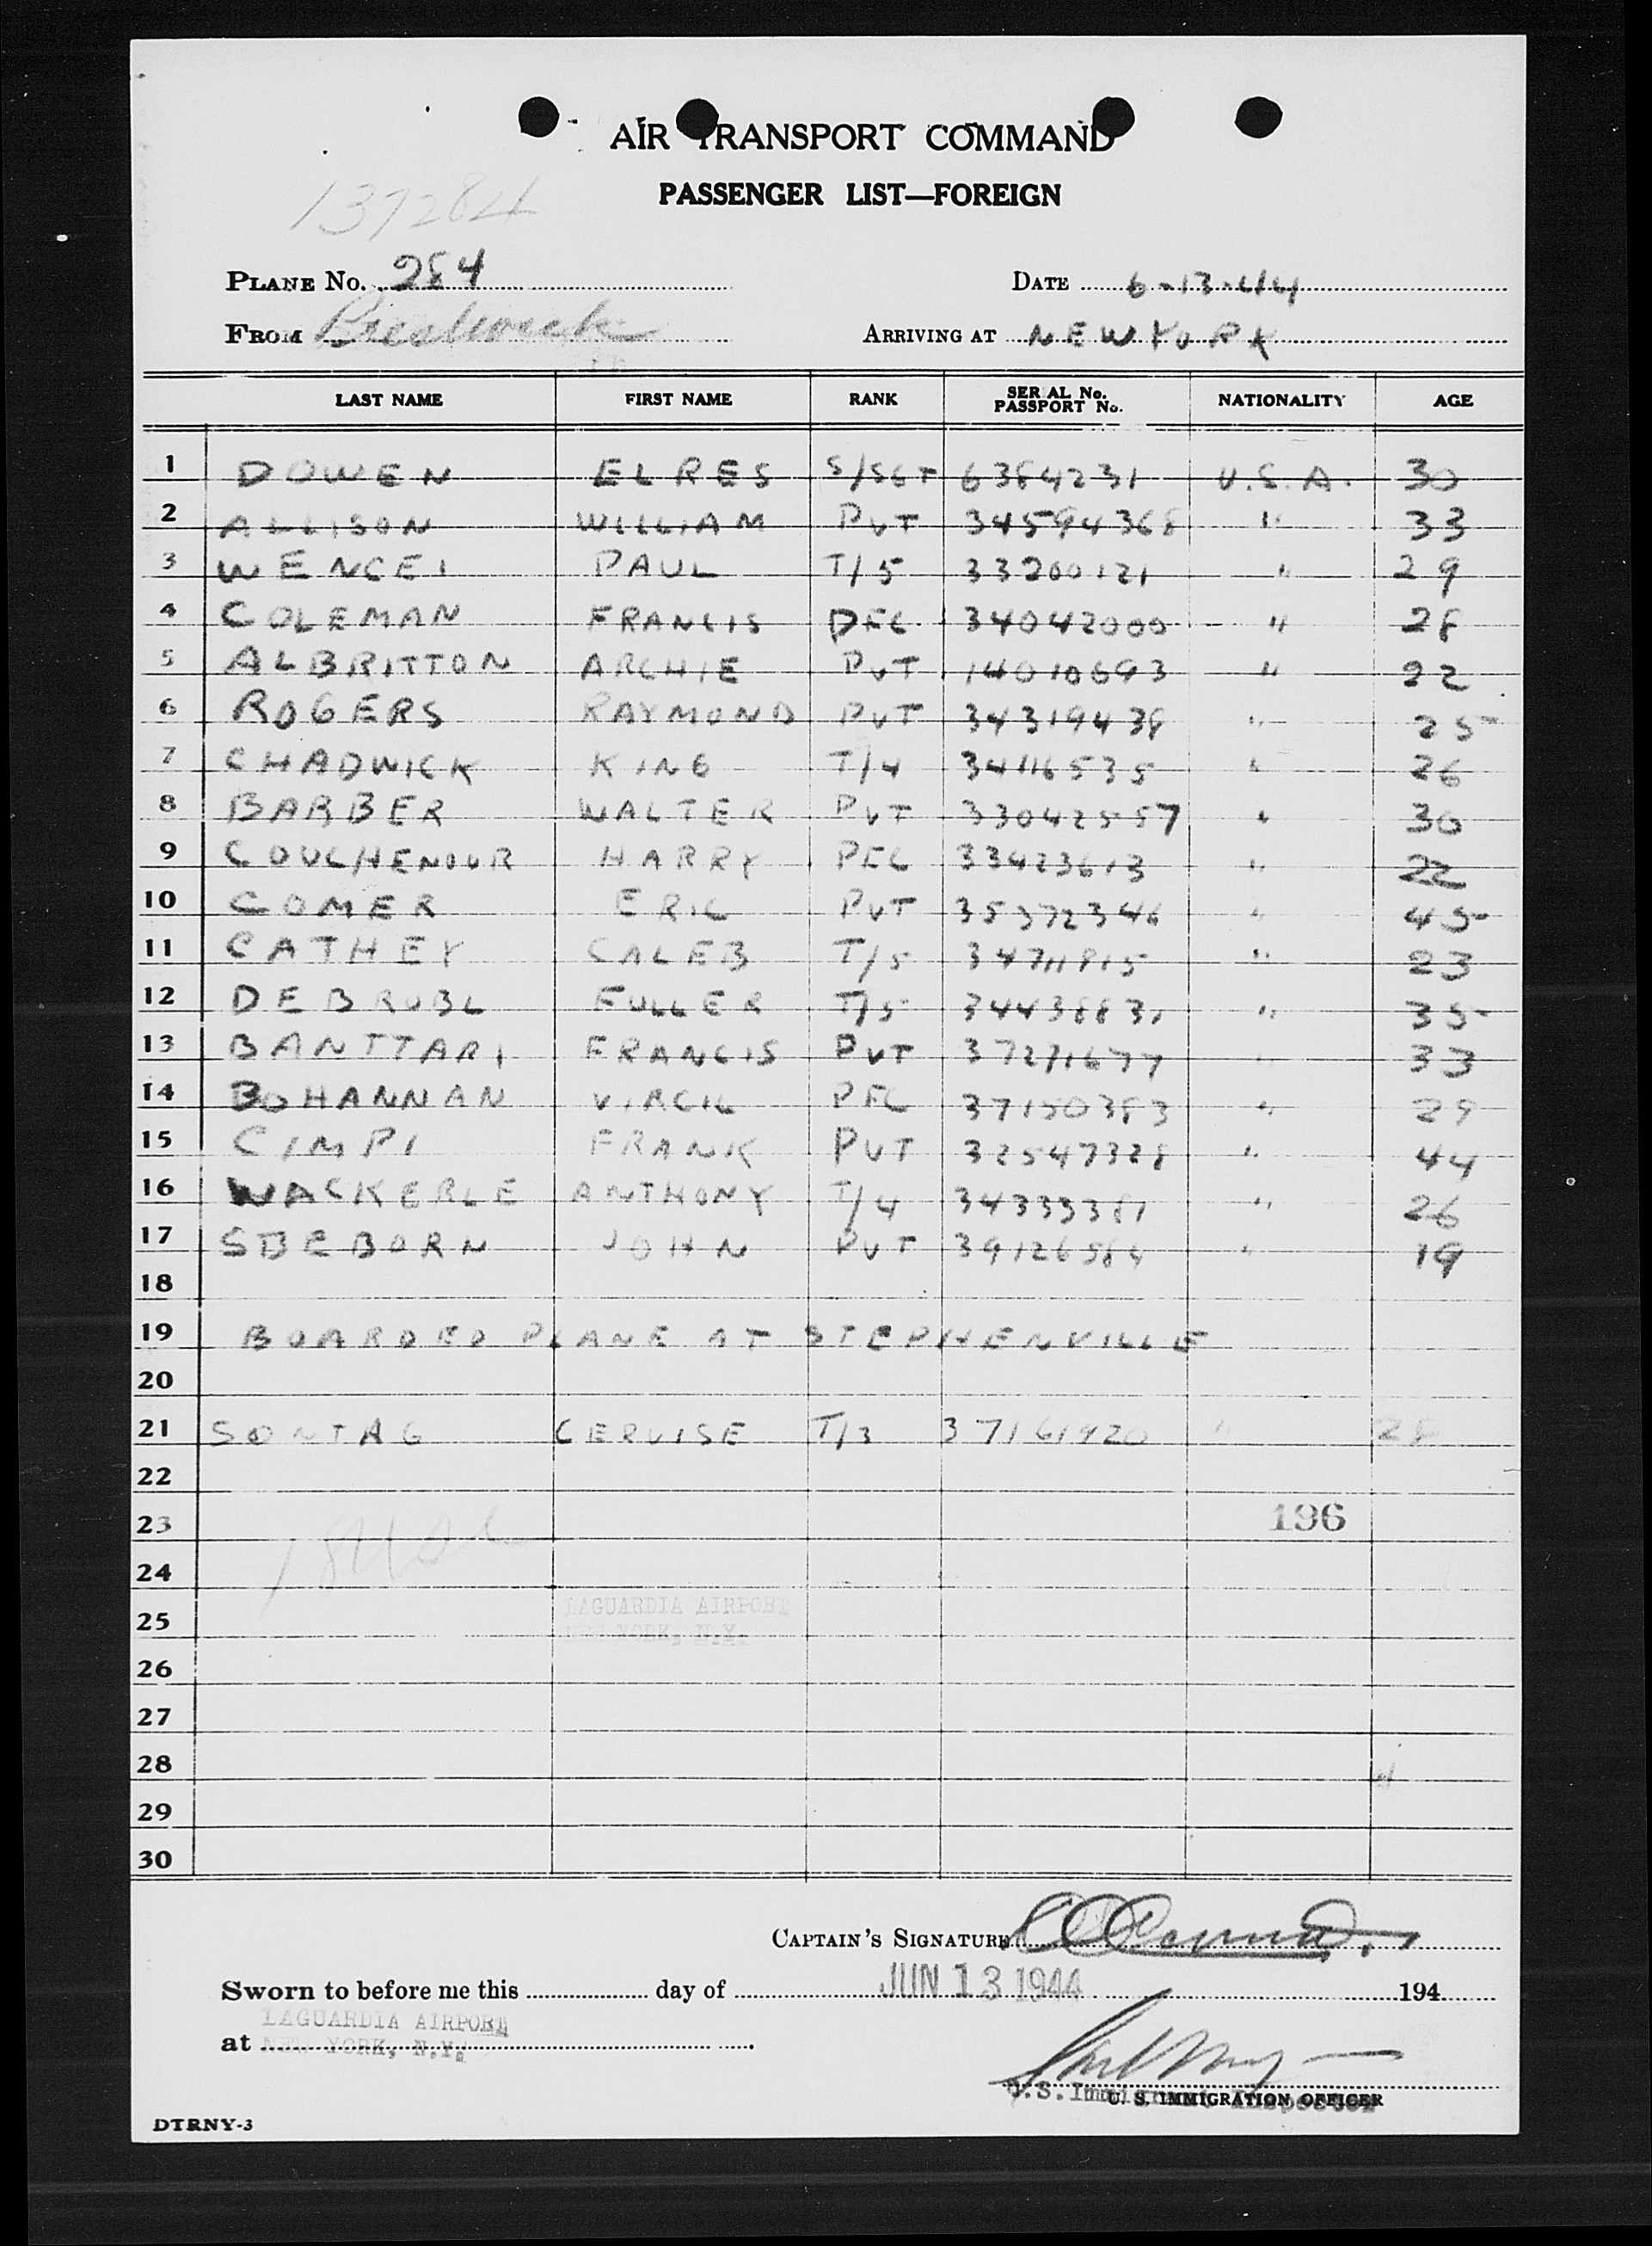 AIR TRANSPORT COMMAND
PASSENGER LIST—FOREIGN
137284
PLANE No. 284 DATE 6-13-44
FROM Prestwick ARRIVING AT NEW YORK
LAST NAME FIRST NAME RANK SERIAL No. PASSPORT No. NATIONALITY AGE
1 DOWEN ELRES S/SGT 6384231 U.S.A. 30
2 ALLISON WILLIAM PVT 34594368 " 33
3 WENCEI PAUL T/5 33200121 " 29
4 COLEMAN FRANCIS PFC 34042000 " 28
5 ALBRITTON ARCHIE PVT 14010693 " 22
6 ROGERS RAYMOND PVT 34319438 " 25
7 CHADWICK KING T/4 34116535 " 26
8 BARBER WALTER PVT 33042557 " 30
9 COUCHENOUR HARRY PFC 33423613 " 22
10 COMER ERIC PVT 35372346 " 45
11 CATHEY CALEB T/5 34711815 " 23
12 DEBRUBL FULLER T/5 34438831 " 35
13 BANTTARI FRANCIS PVT 37271677 " 33
14 BOHANNAN VIRGIL PFC 37150383 " 29
15 CIMPI FRANK PVT 32547328 " 44
16 WACKERLE ANTHONY T/4 34333381 " 26
17 SBEBORN JOHN PVT 39126564 " 19
18
19 BOARDED PLANE AT STEPHENVILLE
20
21 SONTAG CERVISE T/3 37161920 " 28
22
23 196
24
25 LAGUARDIA AIRPORT
NEW YORK, N.Y.
26
27
28
29
30
CAPTAIN'S SIGNATURE
Sworn to before me this day of JUN 13 1944 194
LAGUARDIA AIRPORT
at NEW YORK, N.Y.
U.S. Immigrant Inspector
U. S. IMMIGRATION OFFICER
DTRNY-3